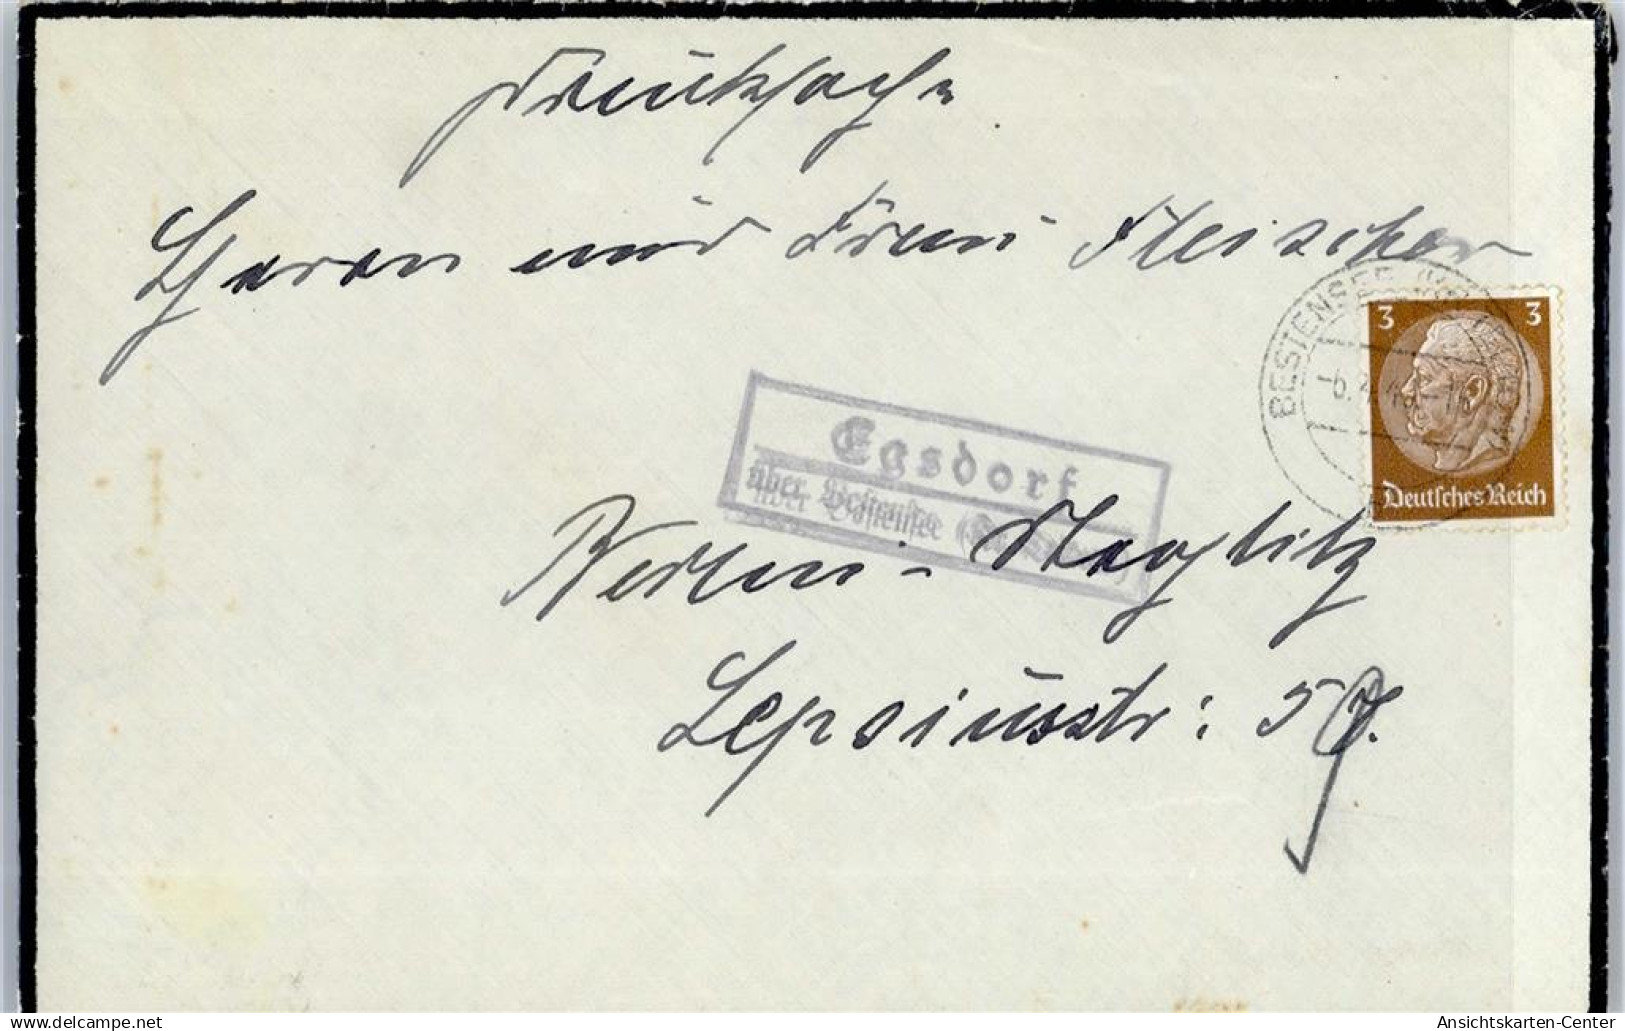 Drucksache.
Herrn und Frau Fleischer
BESTENSEE
3 3
Deutsches Reich
Egsdorf
über Bestensee
Berlin-Steglitz
Lepsiusstr: 59.
Ansichtskarten-Center